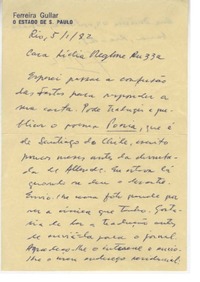 Ferreira Gullar
O ESTADO DE S. PAULO
Rio, 5/1/82
Cara Lidia
Esperei passar a confusão
das festas para responder a
sua carta. Pode traduzir e pu-
blicar o poema Poema, que é
de Santiago do Chile, escrito
poucos meses antes da derruba-
da de Allende. Eu estava lá
quando se deu o
Envio-lhe uma foto grande por
ser a única que tenho. Gosta-
ria de ler a tradução antes
de enviá-la para o jornal.
Agradeço-lhe o interesse e envio-
lhe o meu endereço residencial.